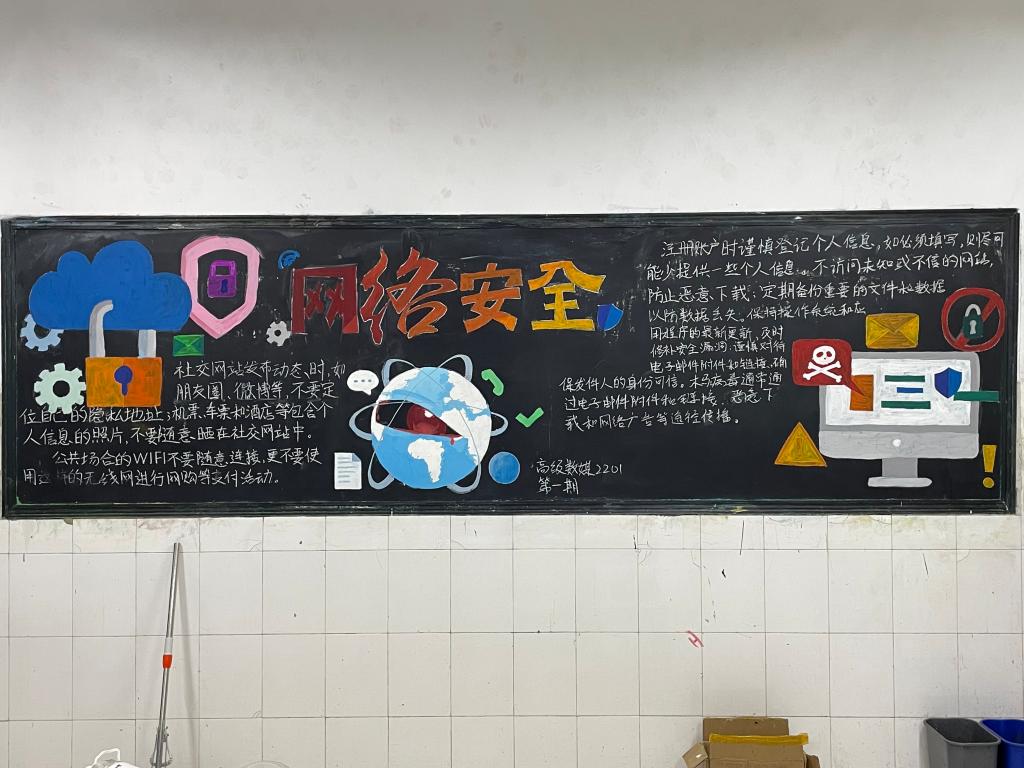 网络安全
社交网站发布动态时,如
朋友圈、微博等,不要定
位自己的隐私地址;机票、车票和酒店等包含个
人信息的照片,不要随意晒在社交网站中。
公共场合的WIFI不要随意连接,更不要使
用这样的无线网进行网购等支付活动。
注册账户时谨慎登记个人信息,如必须填写,则尽可
能少提供一些个人信息。不访问未知或不信的网站,
防止恶意下载;定期备份重要的文件和数据
以防数据丢失。保持操作系统和应
用程序的最新更新,及时
修补安全漏洞;谨慎对待
电子邮件附件和链接,确
保发件人的身份可信。木马病毒通常通
过电子邮件附件和链接、恶意下
载和网络广告等途径传播。
高级数媒2201
第一期